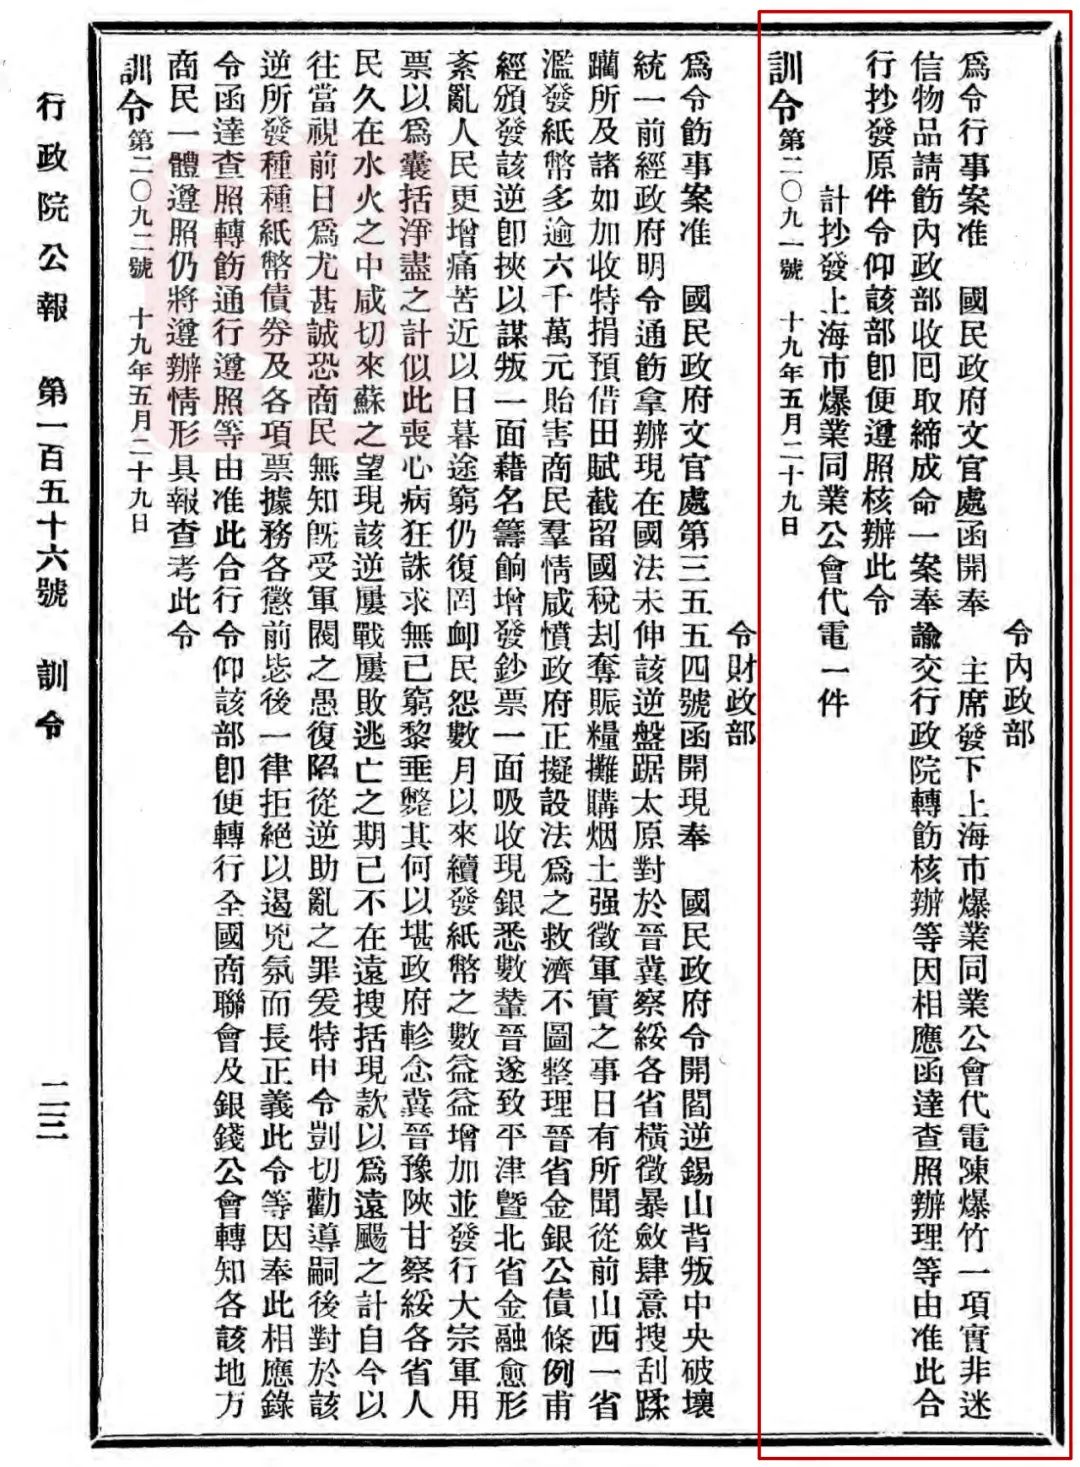 令內政部
爲令行事案准　國民政府文官處函開奉　主席發下上海市爆業同業公會代電陳爆竹一項實非迷
信物品請飭內政部收回取締成命一案奉諭交行政院轉飭核辦等因相應函達查照辦理等由准此合
行抄發原件令仰該部卽便遵照核辦此令
計抄發上海市爆業同業公會代電一件
訓令第二〇九一號　十九年五月二十九日
令財政部
爲令飭事案准　國民政府文官處第三五五四號函開現奉　國民政府令開閻逆錫山背叛中央破壞
統一前經政府明令通飭拿辦現在國法未伸該逆盤踞太原對於晉冀察綏各省橫徵暴斂肆意搜刮蹂
躪所及諸如加收特捐預借田賦截留國稅刦奪賑糧攤購烟土强徵軍實之事日有所聞從前山西一省
濫發紙幣多逾六千萬元貽害商民羣情咸憤政府正擬設法爲之救濟不圖整理晉省金銀公債條例甫
經頒發該逆卽挾以謀叛一面藉名籌餉增發鈔票一面吸收現銀悉數輦晉遂致平津曁北省金融愈形
紊亂人民更增痛苦近以日暮途窮仍復罔卹民怨數月以來續發紙幣之數益益增加並發行大宗軍用
票以爲囊括淨盡之計似此喪心病狂誅求無已窮黎垂斃其何以堪政府軫念冀晉豫陝甘察綏各省人
民久在水火之中咸切來蘇之望現該逆屢戰屢敗逃亡之期已不在遠搜括現款以爲遠颺之計自今以
往當視前日爲尤甚誠恐商民無知旣受軍閥之愚復陷從逆助亂之罪爰特申令剴切勸導嗣後對於該
逆所發種種紙幣債券及各項票據務各懲前毖後一律拒絕以遏兇氛而長正義此令等因奉此相應錄
令函達查照轉飭通行遵照等由准此合行令仰該部卽便轉行全國商聯會及銀錢公會轉知各該地方
商民一體遵照仍將遵辦情形具報查考此令
訓令第二〇九二號　十九年五月二十九日
行政院公報　第一百五十六號　訓令　二三